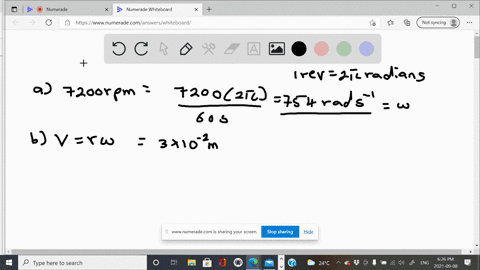 Numerade
Numerade - Whiteboard
https://www.numerade.com/answers/whiteboard/
Not syncing
1 rev = 2π radians
a) 7200 rpm = 7200(2π) / 60 s = 754 rad s⁻¹ = ω
b) V = rω = 3 × 10⁻² m
www.numerade.com is sharing your screen.
Stop sharing
Hide
Type here to search
24°C
ENG
6:26 PM
2021-09-08